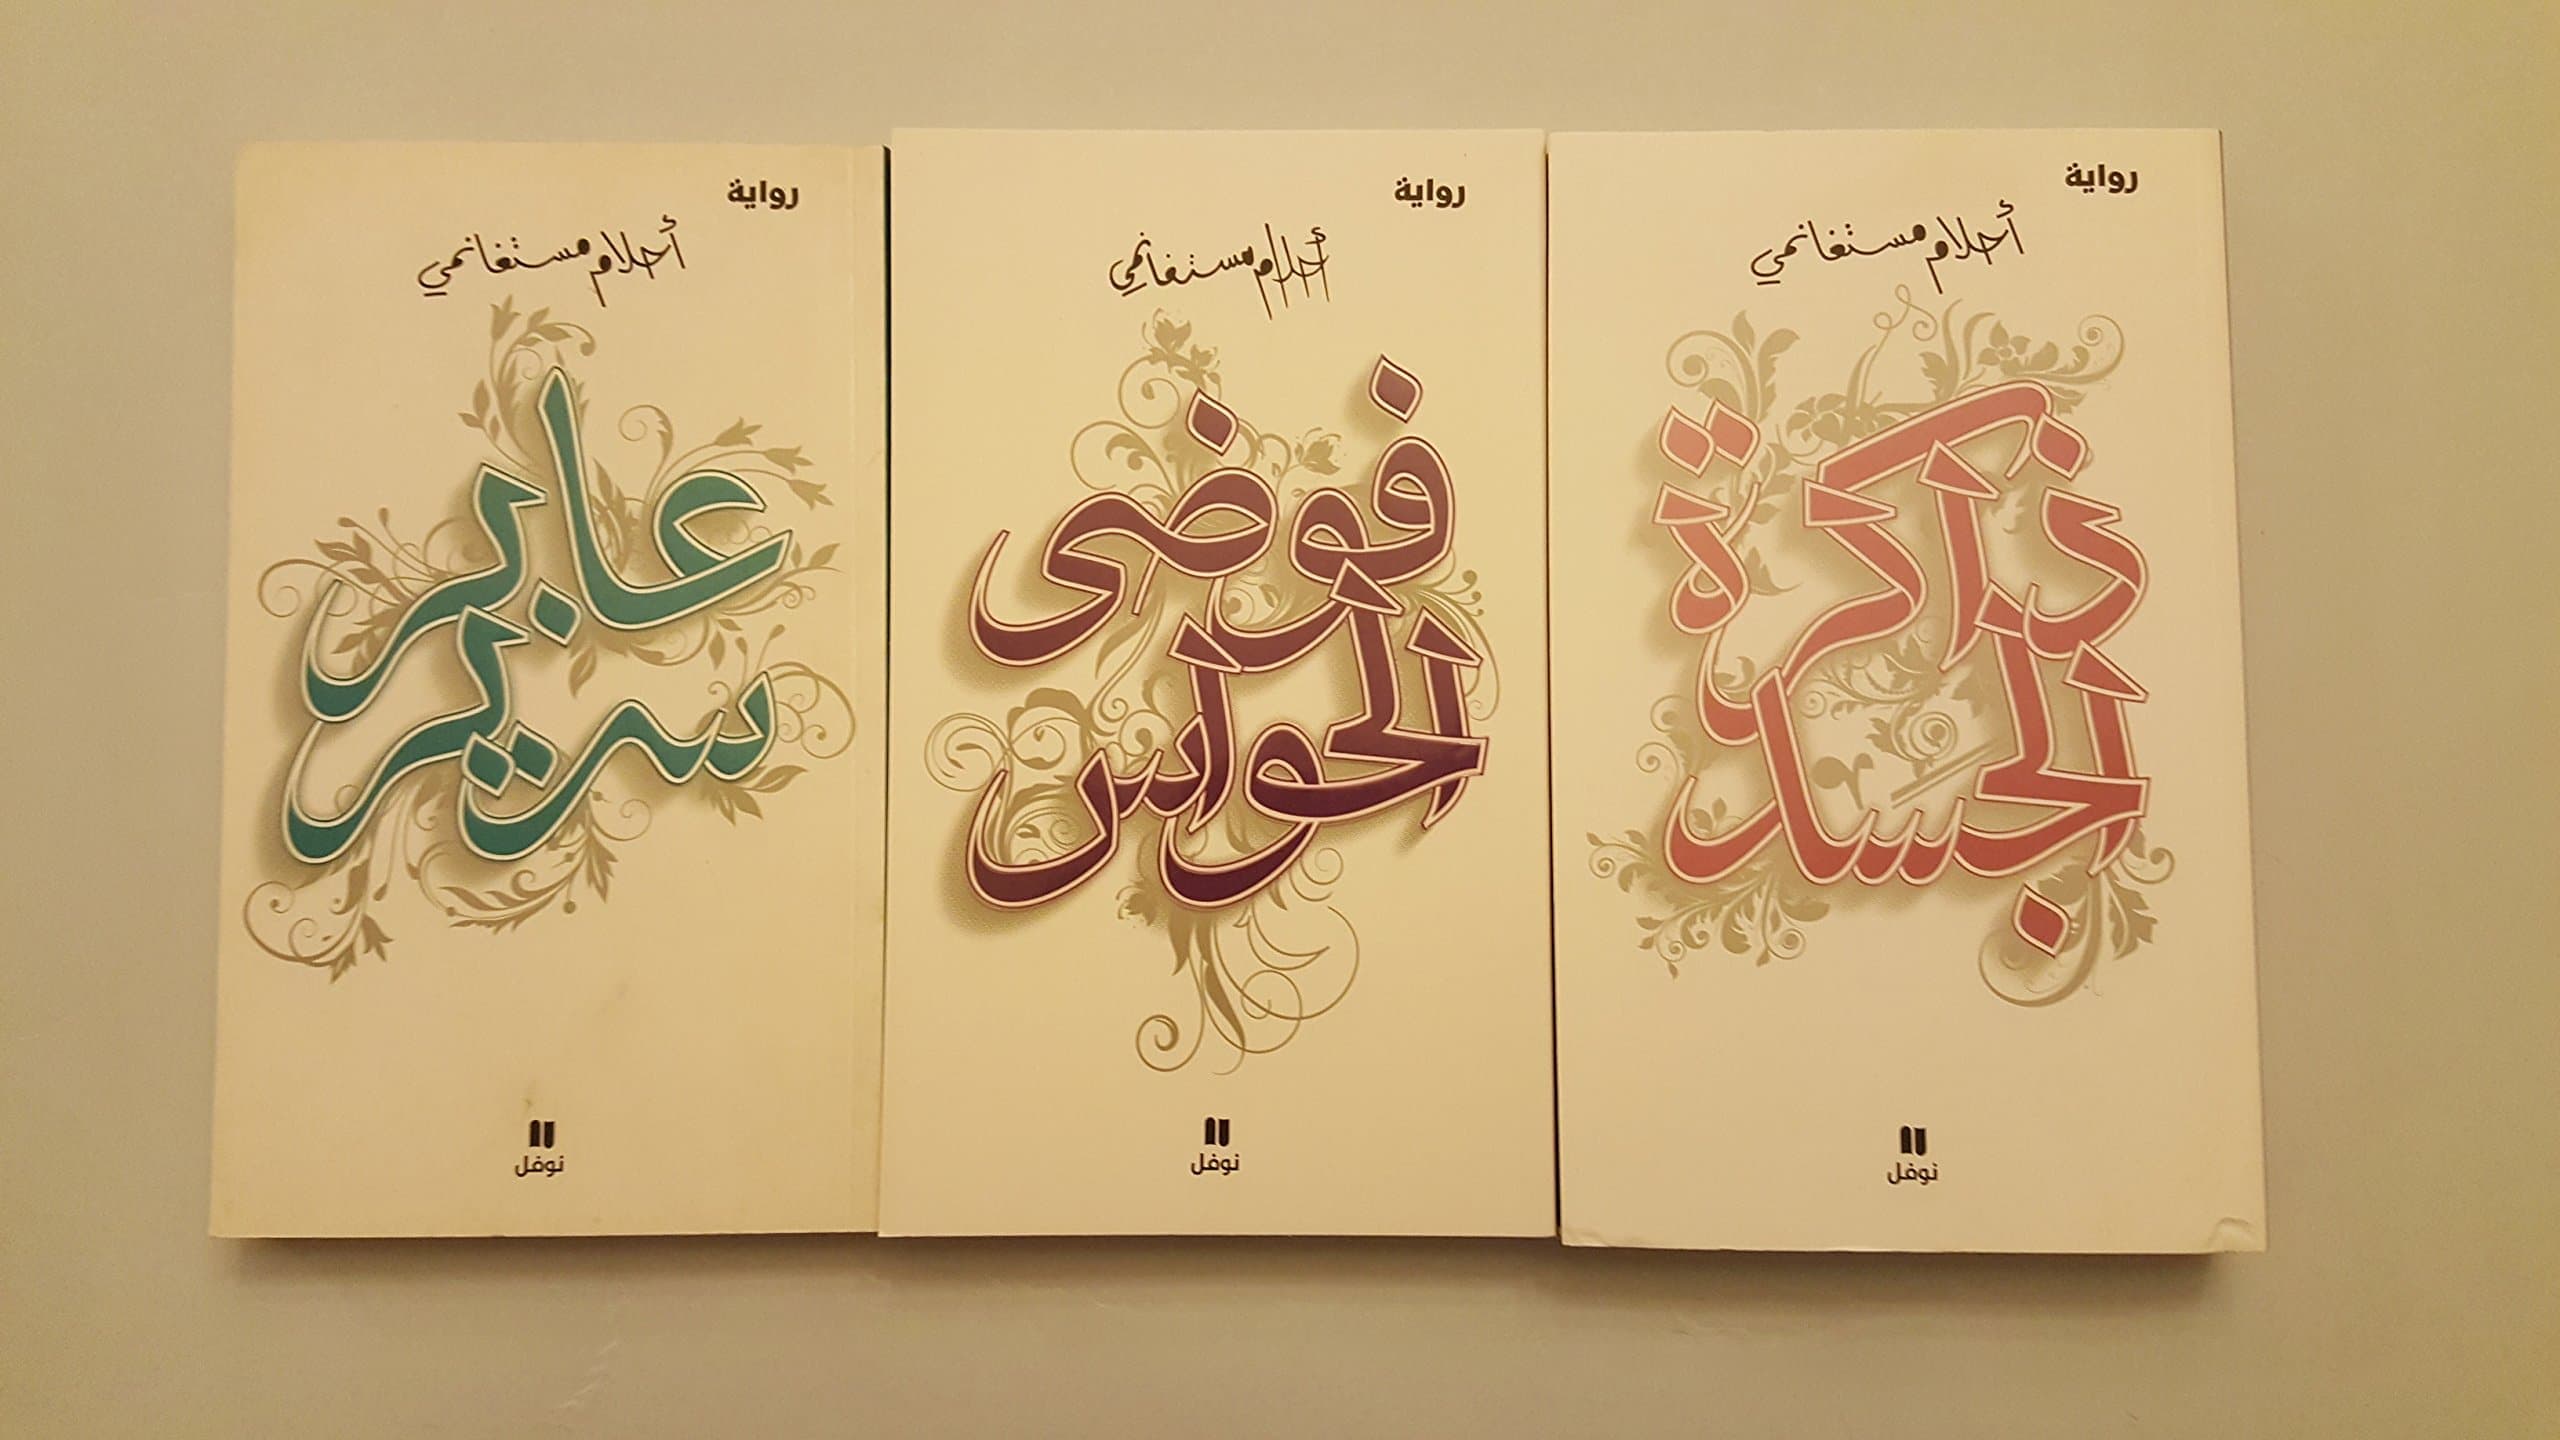 رواية
أحلام مستغانمي
ذاكرة
الجسد
نوفل
رواية
أحلام مستغانمي
فوضى
الحواس
نوفل
رواية
أحلام مستغانمي
عابر
سرير
نوفل